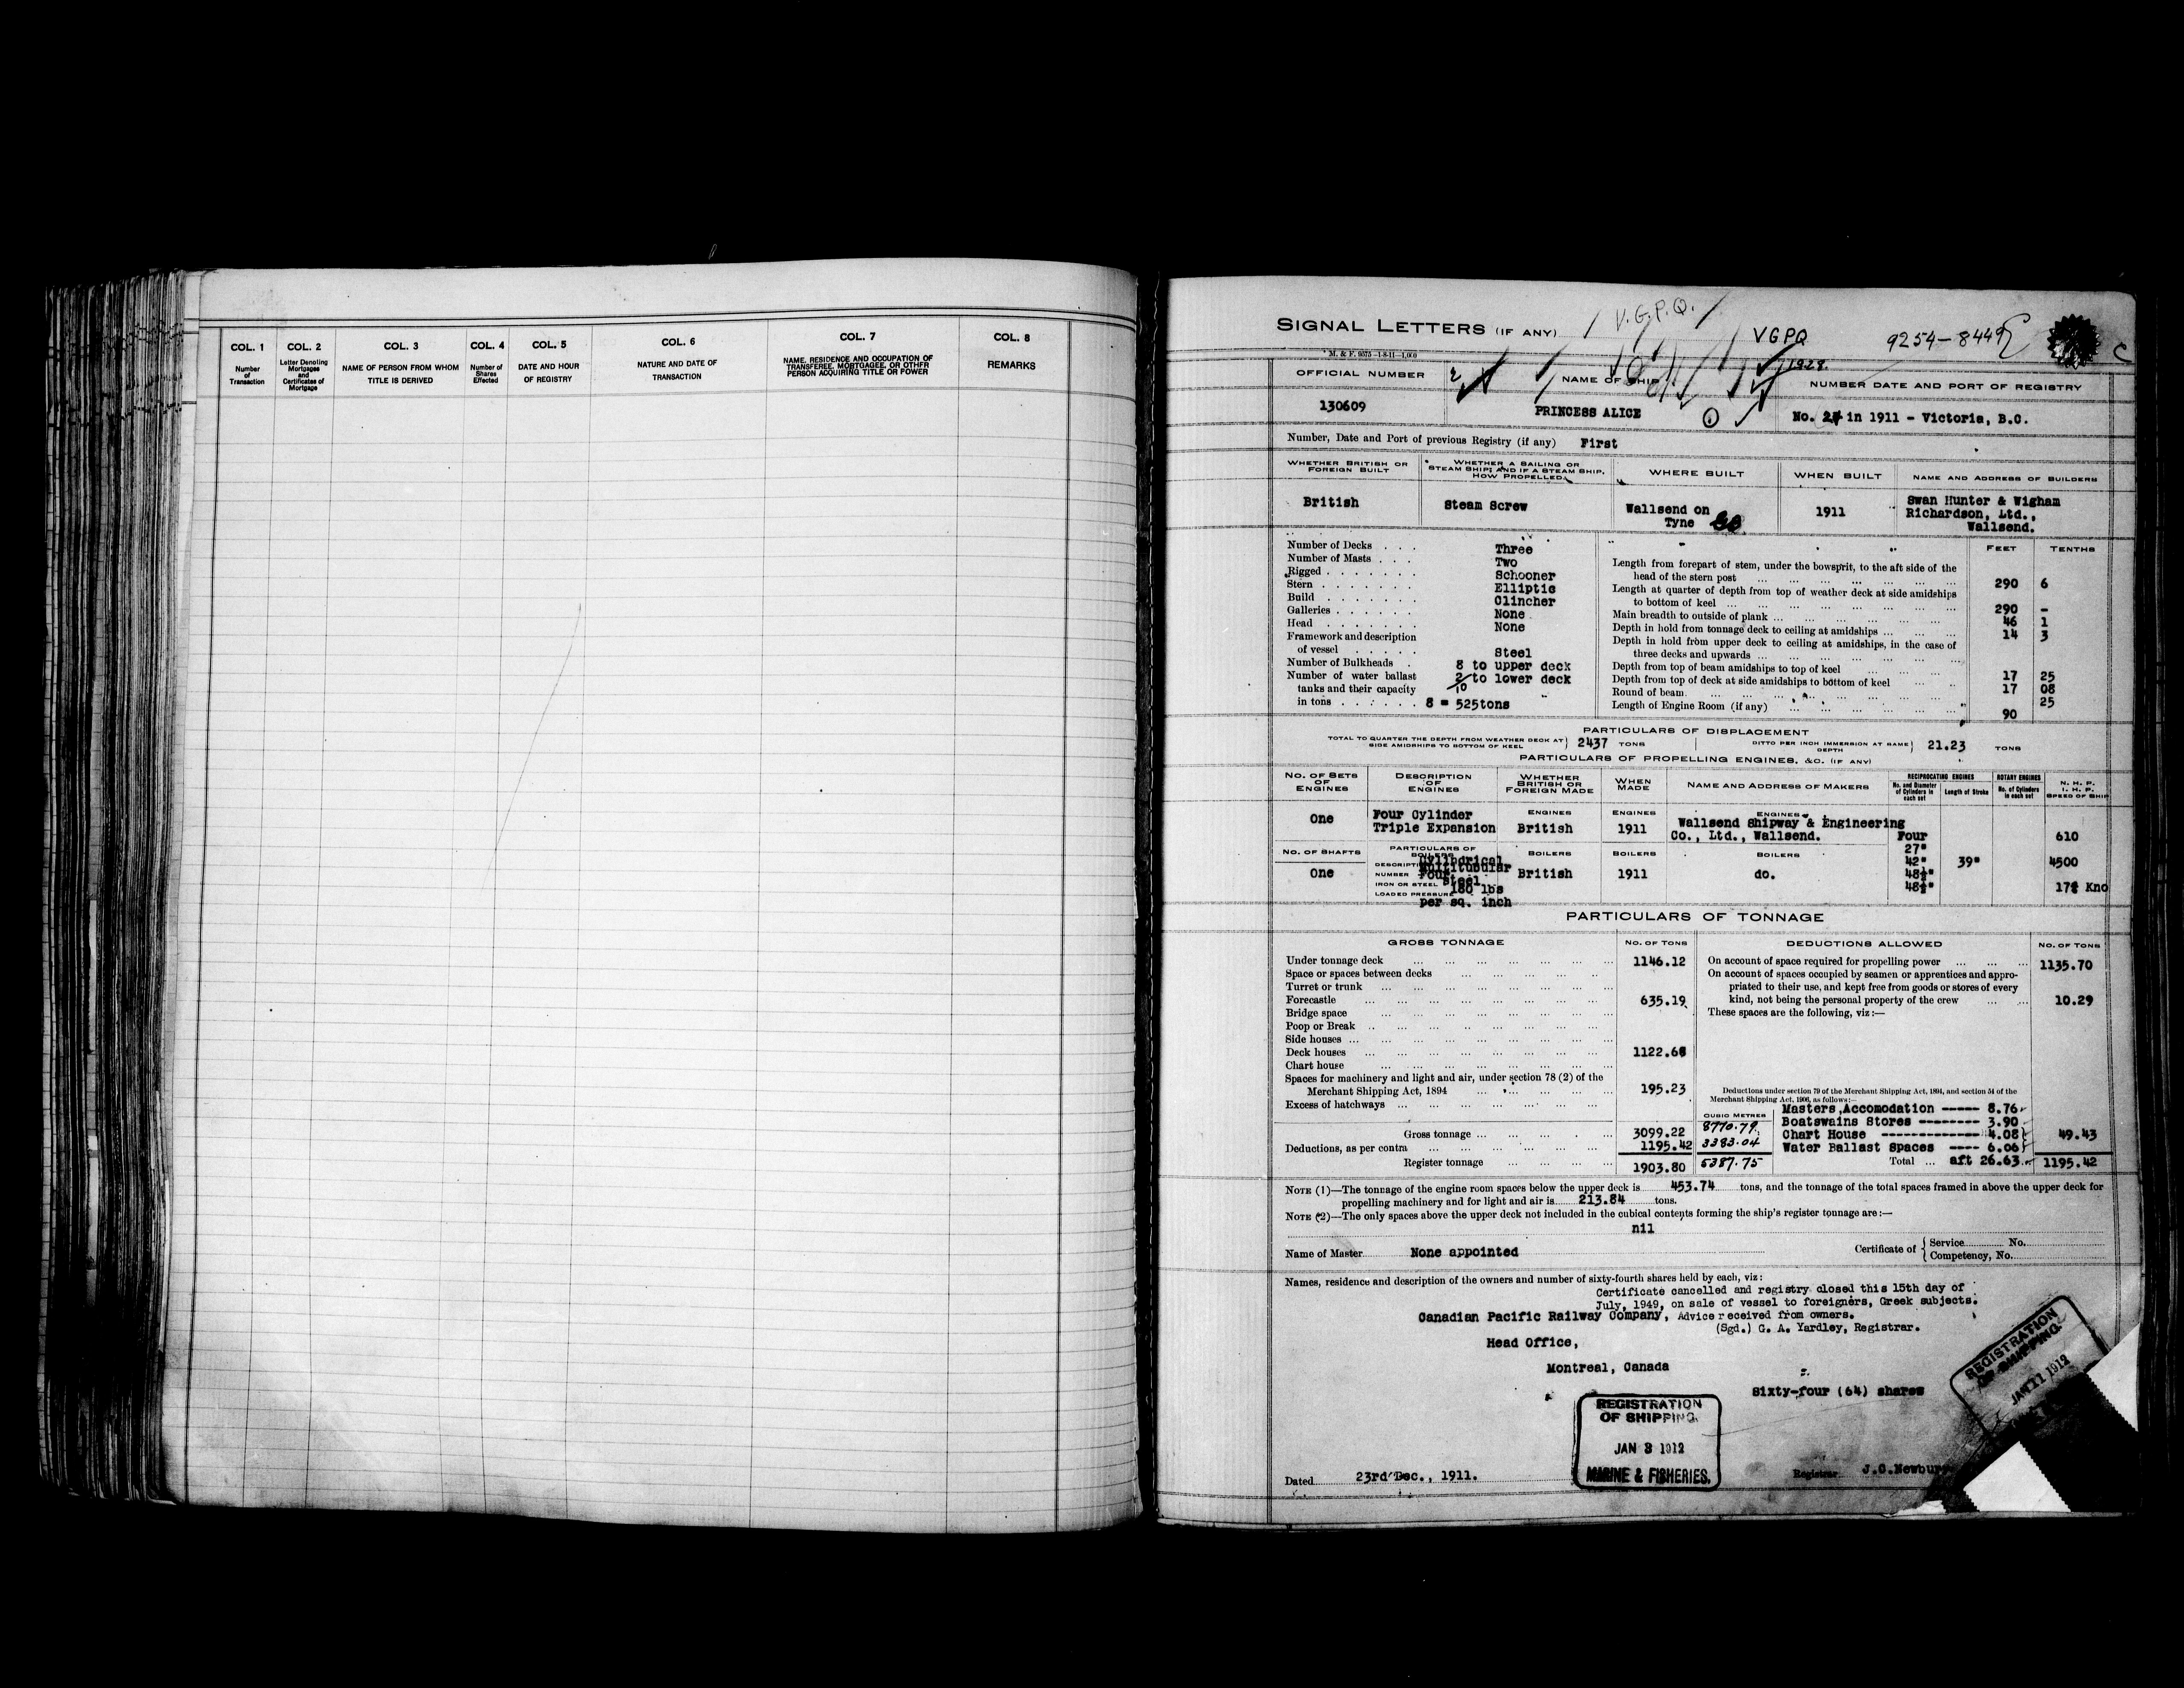 COL. 1
Number
of
Transaction
COL. 2
Letter Denoting
Mortgages
and
Certificates of
Mortgage
COL. 3
NAME OF PERSON FROM WHOM
TITLE IS DERIVED
COL. 4
Number of
Shares
Effected
COL. 5
DATE AND HOUR
OF REGISTRY
COL. 6
NATURE AND DATE OF
TRANSACTION
COL. 7
NAME, RESIDENCE AND OCCUPATION OF
TRANSFEREE, MORTGAGEE, OR OTHER
PERSON ACQUIRING TITLE OR POWER
COL. 8
REMARKS
SIGNAL LETTERS (IF ANY)
V.G.P.Q.
VGPQ
9254-8449
C
M. & F. 9575-1-8-11-1,000
1928.
OFFICIAL NUMBER
NAME OF SHIP
NUMBER DATE AND PORT OF REGISTRY
130609
PRINCESS ALICE
No. 24 in 1911 - Victoria, B.C.
Number, Date and Port of previous Registry (if any) First
WHETHER BRITISH OR
FOREIGN BUILT
WHETHER A SAILING OR
STEAM SHIP; AND IF A STEAM SHIP,
HOW PROPELLED
WHERE BUILT
WHEN BUILT
NAME AND ADDRESS OF BUILDERS
British
Steam Screw
Wallsend on
Tyne
1911
Swan Hunter & Wigham
Richardson, Ltd.,
Wallsend.
Number of Decks . . . Three
Number of Masts . . . Two
Rigged . . . . . . . Schooner
Stern . . . . . . . Elliptic
Build . . . . . . . Clincher
Galleries . . . . . . None
Head . . . . . . . None
Framework and description
of vessel . . . . . Steel
Number of Bulkheads . 8 to upper deck
Number of water ballast 2 to lower deck
tanks and their capacity 10
in tons . . . . . . 8 = 525tons
FEET TENTHS
Length from forepart of stem, under the bowsprit, to the aft side of the
head of the stern post ... 290 6
Length at quarter of depth from top of weather deck at side amidships
to bottom of keel ... 290 -
Main breadth to outside of plank ... 46 1
Depth in hold from tonnage deck to ceiling at amidships ... 14 3
Depth in hold from upper deck to ceiling at amidships, in the case of
three decks and upwards ...
Depth from top of beam amidships to top of keel 17 25
Depth from top of deck at side amidships to bottom of keel 17 08
Round of beam 25
Length of Engine Room (if any) 90
PARTICULARS OF DISPLACEMENT
TOTAL TO QUARTER THE DEPTH FROM WEATHER DECK AT
SIDE AMIDSHIPS TO BOTTOM OF KEEL
2437 TONS
DITTO PER INCH IMMERSION AT SAME
DEPTH
21.23 TONS
PARTICULARS OF PROPELLING ENGINES, &C. (IF ANY)
NO. OF SETS
OF
ENGINES
DESCRIPTION
OF
ENGINES
WHETHER
BRITISH OR
FOREIGN MADE
WHEN
MADE
NAME AND ADDRESS OF MAKERS
RECIPROCATING ENGINES
No. and Diameter
of Cylinders in
each set
Length of Stroke
ROTARY ENGINES
No. of Cylinders
in each set
N. H. P.
I. H. P.
SPEED OF SHIP
One
Four Cylinder
Triple Expansion
ENGINES
British
ENGINES
1911
ENGINES
Wallsend Shipway & Engineering
Co., Ltd., Wallsend.
Four
27"
42"
48½"
48½"
39"
610
4500
17¾ Kno
NO. OF SHAFTS
One
PARTICULARS OF
BOILERS
DESCRIPTION
Cylindrical
Multitubular
NUMBER Four
IRON OR STEEL Steel
LOADED PRESSURE 180 lbs
per sq. inch
BOILERS
British
BOILERS
1911
BOILERS
do.
PARTICULARS OF TONNAGE
GROSS TONNAGE
NO. OF TONS
Under tonnage deck ... 1146.12
Space or spaces between decks ...
Turret or trunk ...
Forecastle ... 635.19
Bridge space ...
Poop or Break ...
Side houses ...
Deck houses ... 1122.68
Chart house ...
Spaces for machinery and light and air, under section 78 (2) of the
Merchant Shipping Act, 1894 ... 195.23
Excess of hatchways ...
CUBIC METRES
Gross tonnage ... 3099.22 8770.79
Deductions, as per contra ... 1195.42 3383.04
Register tonnage ... 1903.80 5387.75
DEDUCTIONS ALLOWED
NO. OF TONS
On account of space required for propelling power ... 1135.70
On account of spaces occupied by seamen or apprentices and appro-
priated to their use, and kept free from goods or stores of every
kind, not being the personal property of the crew ... 10.29
These spaces are the following, viz:—
Deductions under section 79 of the Merchant Shipping Act, 1894, and section 54 of the
Merchant Shipping Act, 1906, as follows:—
Masters Accomodation ----- 8.76
Boatswains Stores -------- 3.90
Chart House ------------- 4.08 49.43
Water Ballast Spaces ---- 6.06
Total ... aft 26.63 1195.42
NOTE (1)—The tonnage of the engine room spaces below the upper deck is 453.74 tons, and the tonnage of the total spaces framed in above the upper deck for
propelling machinery and for light and air is 213.84 tons.
NOTE (2)—The only spaces above the upper deck not included in the cubical contents forming the ship's register tonnage are:—
nil
Name of Master None appointed
Certificate of
Service No.
Competency, No.
Names, residence and description of the owners and number of sixty-fourth shares held by each, viz:
Certificate cancelled and registry closed this 15th day of
July, 1949, on sale of vessel to foreigners, Greek subjects.
Canadian Pacific Railway Company, Advice received from owners.
(Sgd.) G. A. Yardley, Registrar.
Head Office,
Montreal, Canada
Sixty-four (64) shares
REGISTRATION
OF SHIPPING
JAN 3 1912
MARINE & FISHERIES.
REGISTRATION
OF SHIPPING.
JAN 11 1912
Dated 23rd Dec., 1911.
Registrar J.C.Newbur